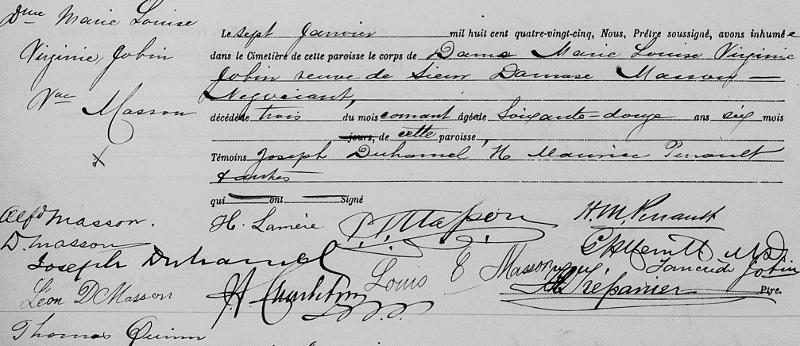 Dme Marie Louise
Virginie Jobin
Vve Masson
Le sept Janvier mil huit cent quatre-vingt-cinq, Nous, Prêtre soussigné, avons inhumée
dans le Cimetière de cette paroisse le corps de Dame Marie Louise Virginie
Jobin veuve de Sieur Damase Masson —
Négociant,
décédée le trois du mois courant âgée de Soixante-douze ans six mois
jours, de cette paroisse,
Témoins Joseph Duhamel, H Maurice Perrault
& autres
qui ont Signé
Alfd Masson.
H. Lamère
H. M Perrault
D. Masson
Joseph Duhamel
Louis E Masson
Jobin
Léon D Masson
Trépanier Ptre.
Thomas Quinn